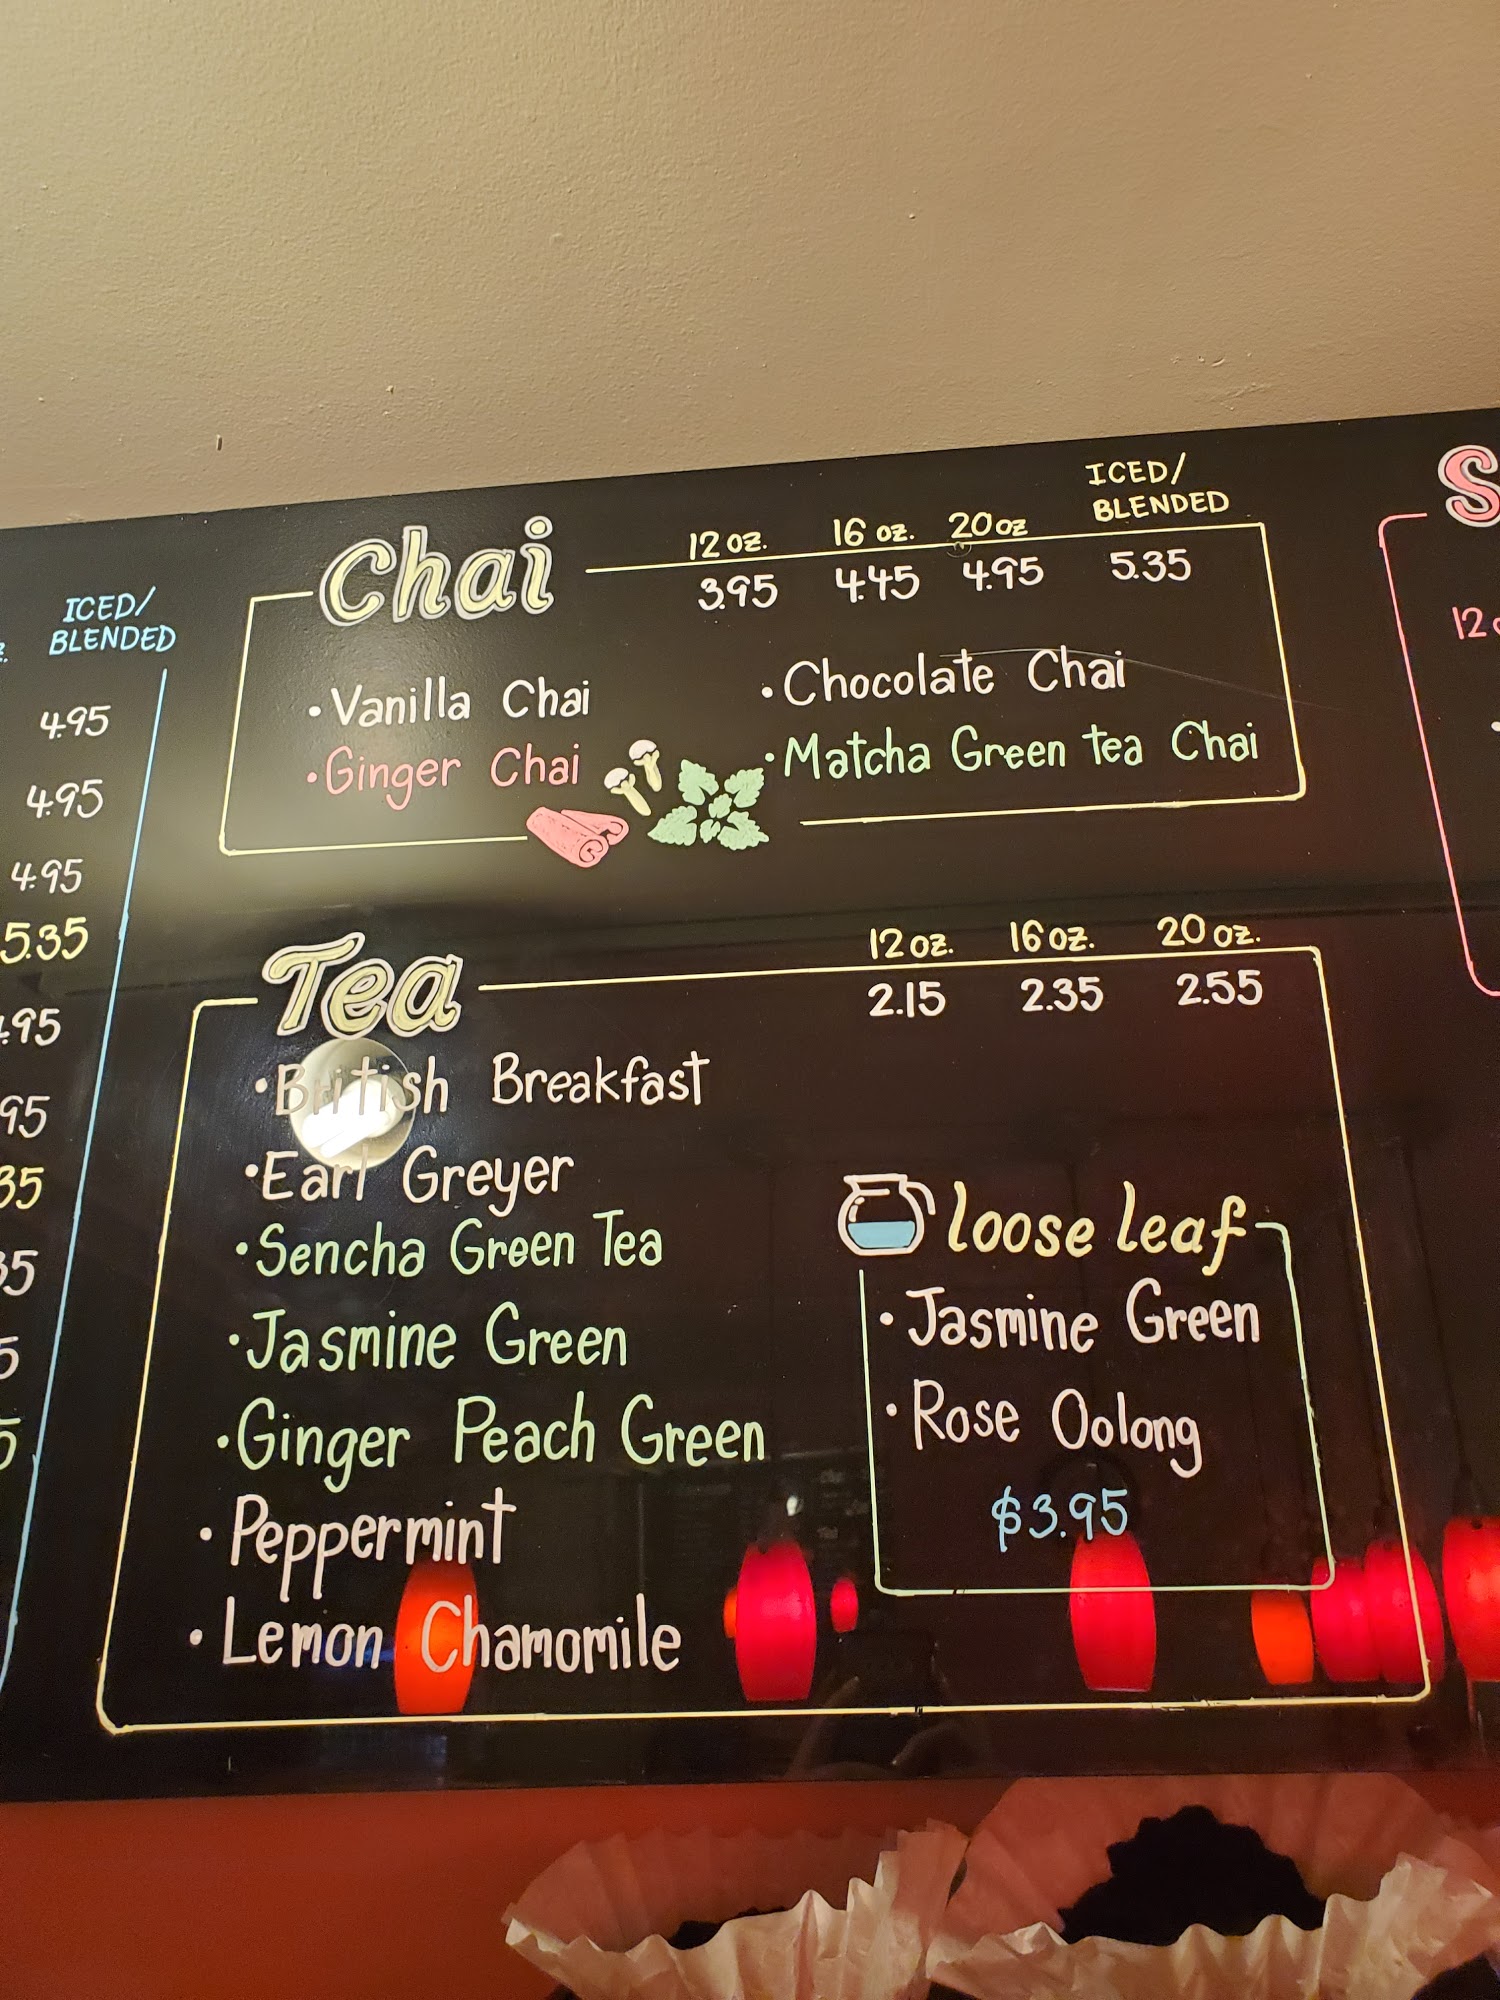 ICED/
BLENDED
4.95
4.95
4.95
5.35
.95
95
35
35
5
5
Chai
12 oz. 16 oz. 20 oz ICED/
BLENDED
3.95 4.45 4.95 5.35
• Vanilla Chai
• Ginger Chai
• Chocolate Chai
• Matcha Green tea Chai
Tea
12 oz. 16 oz. 20 oz.
2.15 2.35 2.55
• British Breakfast
• Earl Greyer
• Sencha Green Tea
• Jasmine Green
• Ginger Peach Green
• Peppermint
• Lemon Chamomile
loose leaf
• Jasmine Green
• Rose Oolong
$3.95
S
12